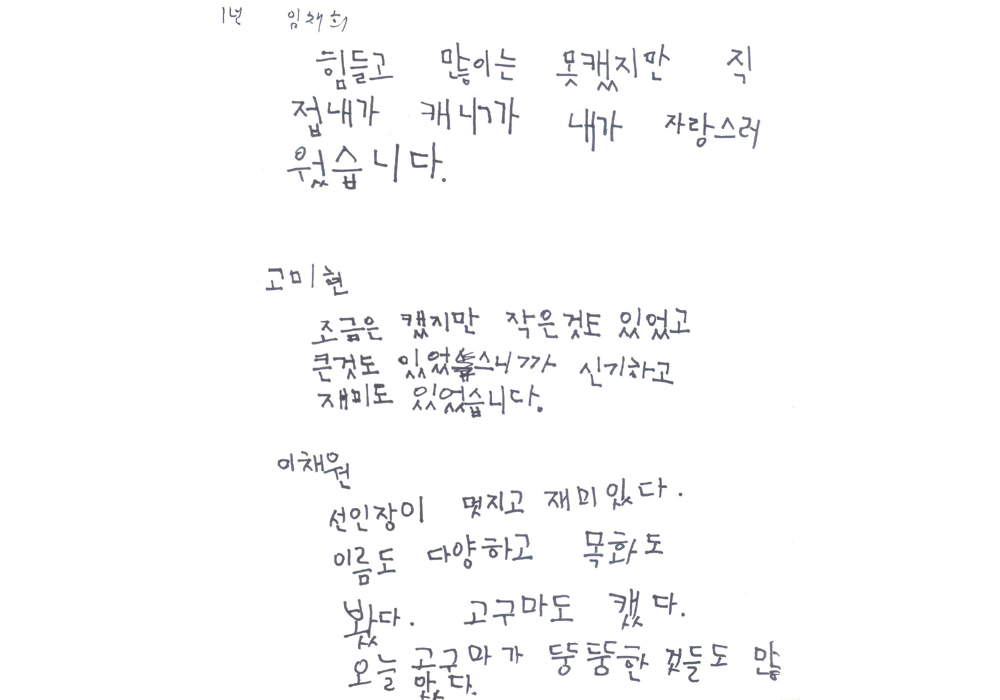 1년 임채희
힘들고 많이는 못캤지만 직
접내가 캐니까 내가 자랑스러
웠습니다.
고미현
조금은 캤지만 작은것도 있었고
큰것도 있었스니까 신기하고
재미도 있었습니다.
이채원
선인장이 몇지고 재미있다.
이름도 다양하고 목화도
봤다. 고구마도 캤다.
오늘 고구마가 뚱뚱한 것들도 많
았다.